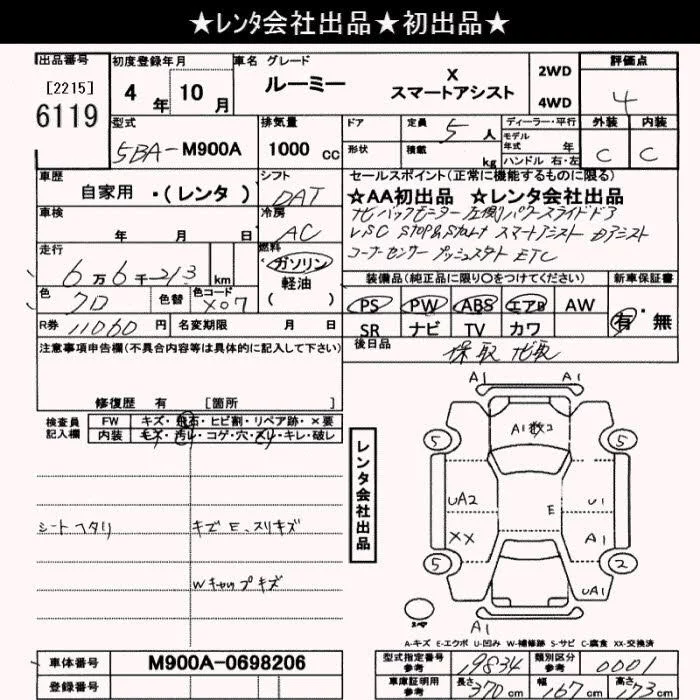 ★レンタ会社出品★初出品★
出品番号 初度登録年月 車名 グレード 評価点
[2215] 4年 10月 ルーミー X スマートアシスト 2WD 4WD 4
6119
型式 排気量 ドア 定員 5人 ディーラー・平行 外装 内装
5BA-M900A 1000cc 形状 積載 kg モデル年式 年 ハンドル 右・左 C C
車歴 シフト セールスポイント(正常に機能するものに限る)
自家用 ・(レンタ) DAT ☆AA初出品 ☆レンタ会社出品
車検 冷房 ナビ バックモニター 左側パワースライドドア
年 月 日 AC VSC STOP&Start スマートアシスト
走行 燃料 コーナーセンサー プッシュスタート ETC
6万6千213 km ガソリン 軽油 ( )
装備品(純正品に限り○をつけてください) 新車保証書
色 クロ 色替 色コード X07 PS PW ABS エアB AW 有・無
R券 11060円 名変期限 月 日 SR ナビ TV カワ
注意事項申告欄(不具合内容等は具体的に記入して下さい) 後日品 保取 ナビ取
修復歴 有 [箇所
検査員記入欄 FW キズ・飛石・ヒビ割・リペア跡・×要
内装 キズ・汚レ・コゲ・穴・スレ・キレ・破レ
シートヘタリ キズE、スリキズ
Wキャップキズ
レンタ会社出品
A1 A1
A1数コ
5 5
UA2 U1
E
XX A1
5 2
UA1
スペア
A1
A-キズ E-エクボ U-凹み W-補修跡 S-サビ C-腐食 XX-交換済
車体番号 M900A-0698206 型式指定番号 参考 19834 類別区分 参考 0001
登録番号 車庫証明用 参考 長さ 370cm 幅 167cm 高さ 173cm